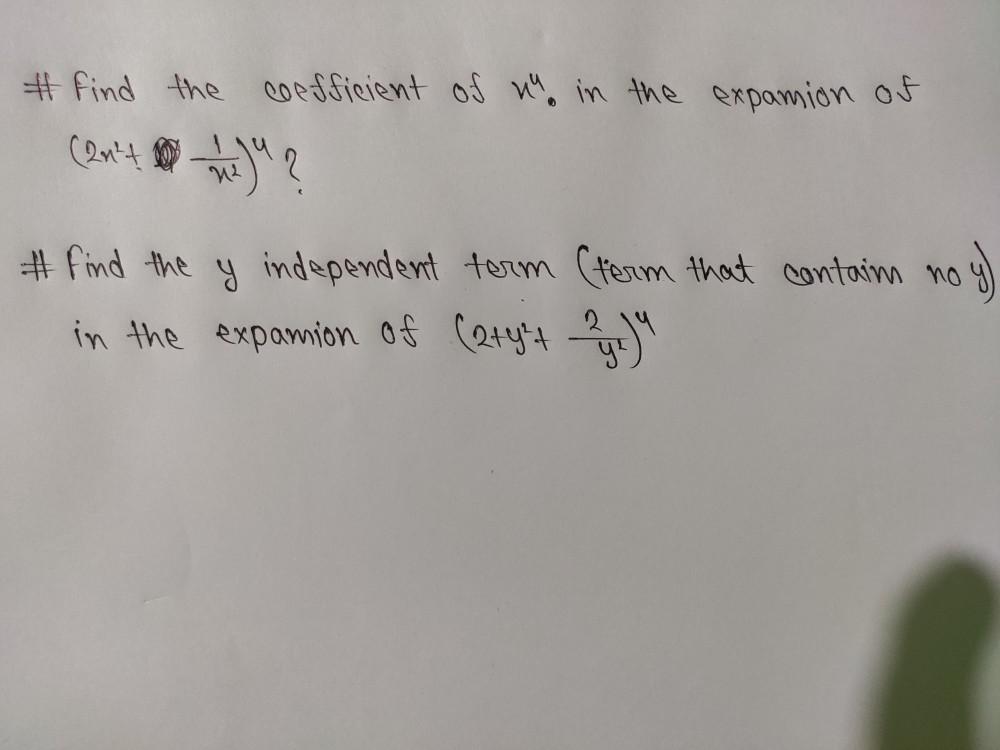 # Find the coefficient of x⁴. in the expansion of
(2x²+ 1/x²)⁴ ?
# Find the y independent term (term that contains no y)
in the expansion of (2+y²+ 2/y²)⁴